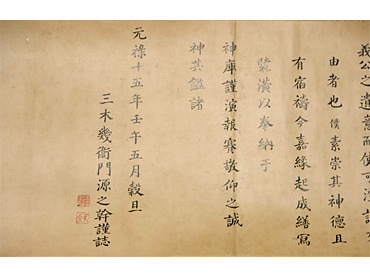 義公之遺意而使可演
由者也僕素崇其神德且
有宿禱今嘉緣起成繕寫
裝潢以奉納于
神庫謹演報賽敬仰之誠
神其鑑諸
元祿十五年壬午五月穀旦
三木幾衛門源之幹謹誌